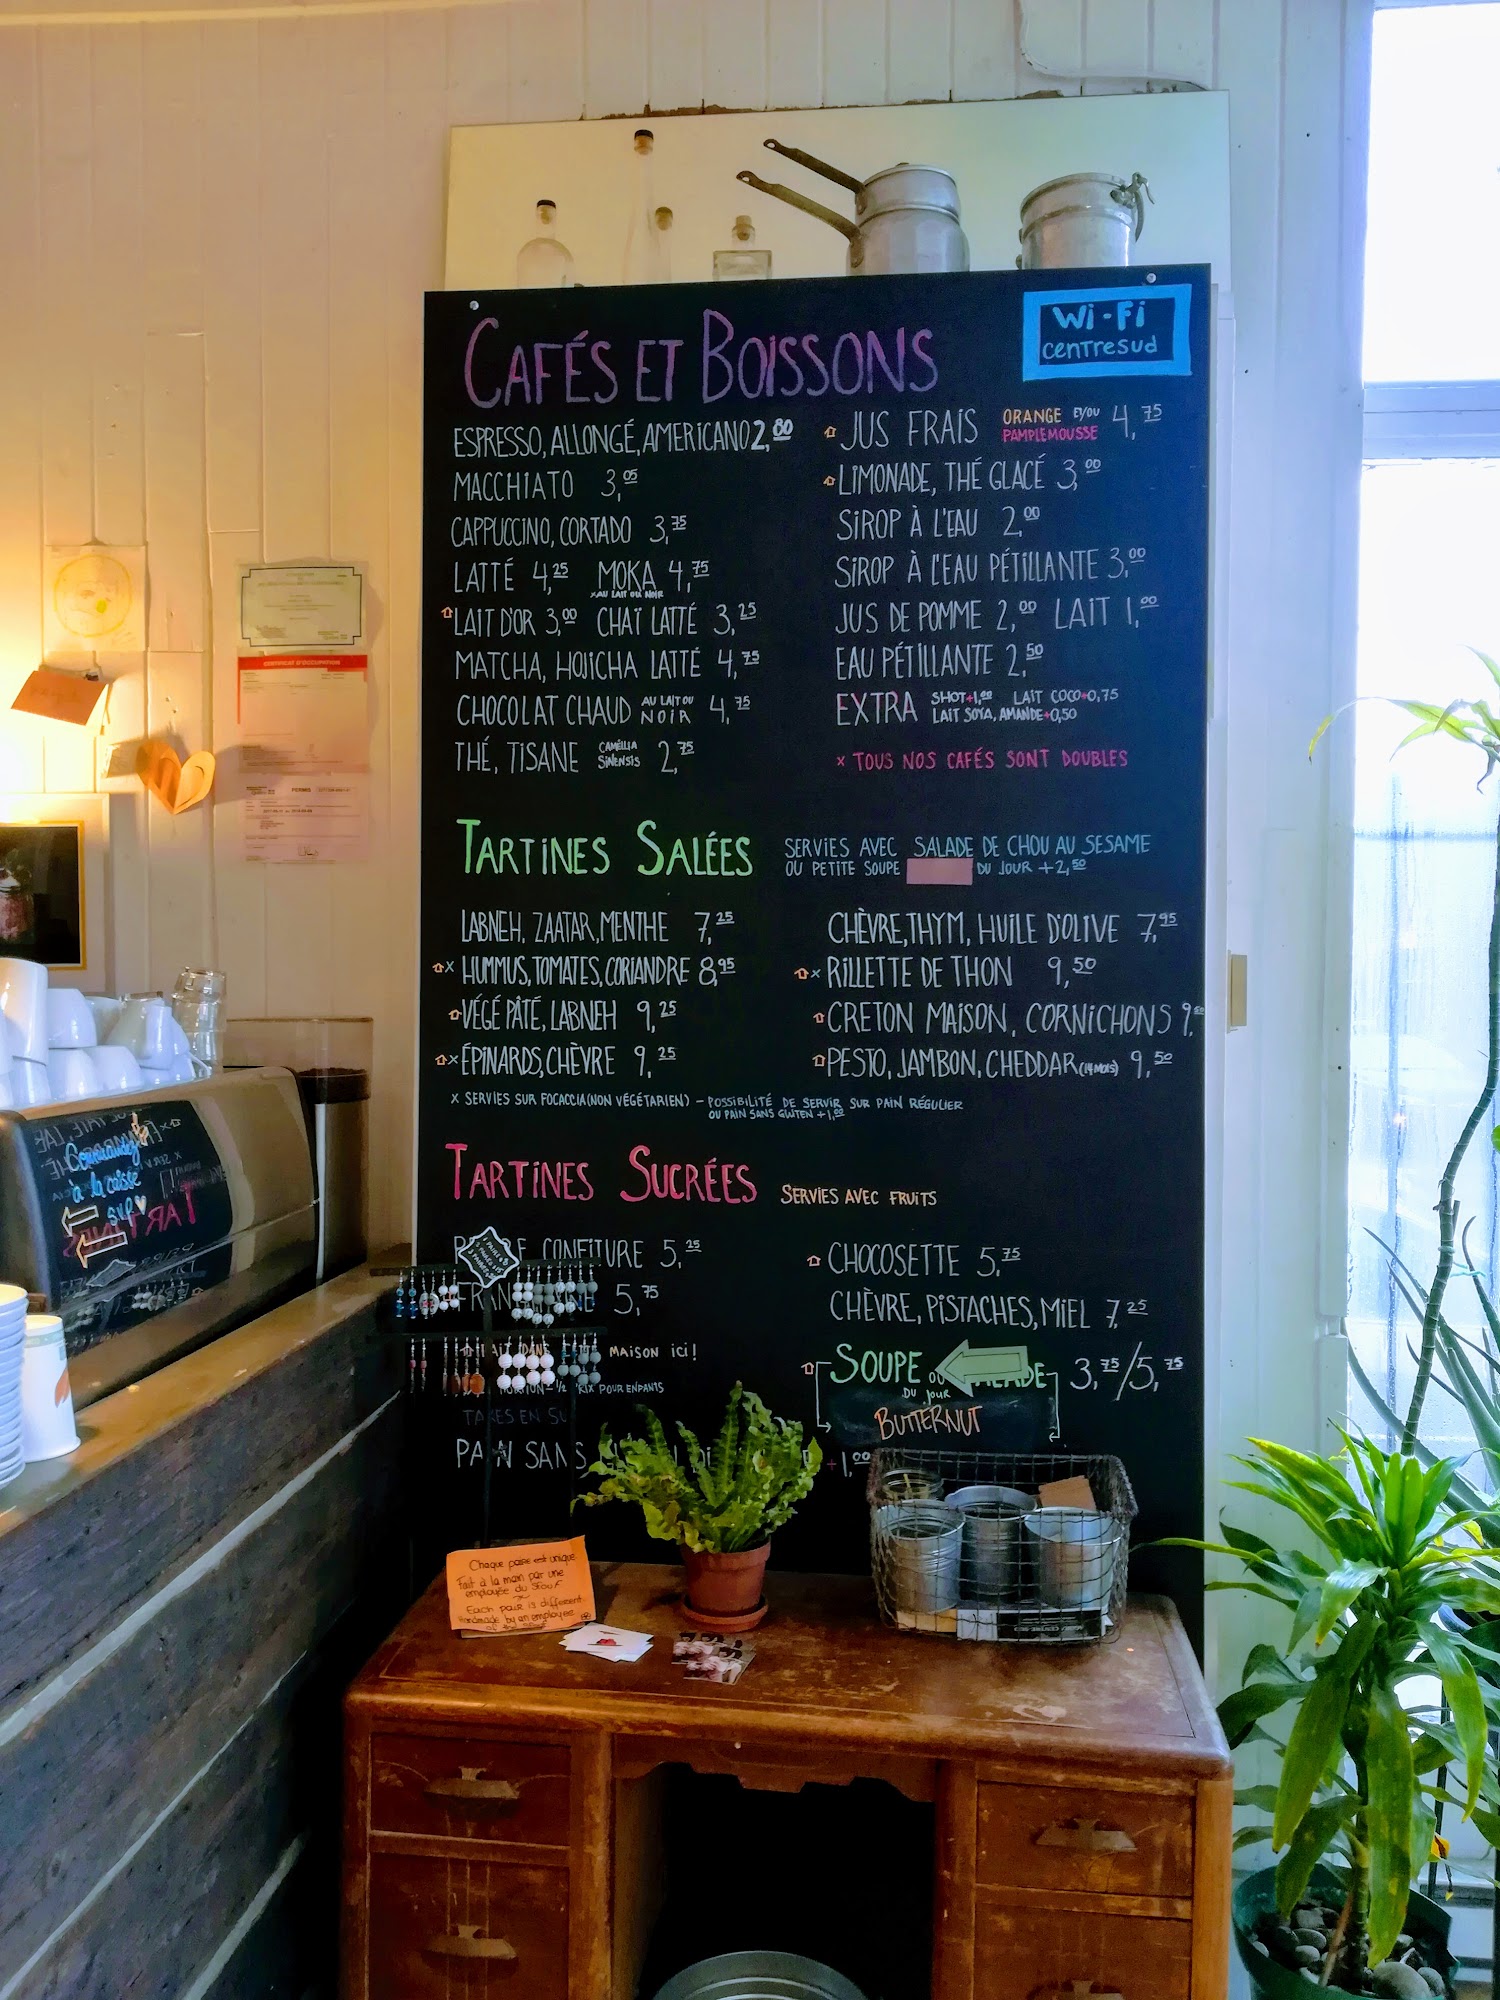 CAFÉS ET BOISSONS
Wi-Fi
centresud
ESPRESSO, ALLONGÉ, AMERICANO 2,80
MACCHIATO 3,05
CAPPUCCINO, CORTADO 3,75
LATTÉ 4,25 MOKA 4,75
*AU LAIT OU NOIR
LAIT D'OR 3,00 CHAÏ LATTÉ 3,25
MATCHA, HOJICHA LATTÉ 4,75
CHOCOLAT CHAUD AU LAIT OU NOIR 4,75
THÉ, TISANE CAMÉLLIA SINENSIS 2,75
JUS FRAIS ORANGE ET/OU PAMPLEMOUSSE 4,75
LIMONADE, THÉ GLACÉ 3,00
SIROP À L'EAU 2,00
SIROP À L'EAU PÉTILLANTE 3,00
JUS DE POMME 2,00 LAIT 1,00
EAU PÉTILLANTE 2,50
EXTRA SHOT+1,00 LAIT COCO+0,75
LAIT SOYA, AMANDE+0,50
x TOUS NOS CAFÉS SONT DOUBLES
TARTINES SALÉES
SERVIES AVEC SALADE DE CHOU AU SESAME
OU PETITE SOUPE DU JOUR +2,50
LABNEH, ZAATAR, MENTHE 7,25
x HUMMUS, TOMATES, CORIANDRE 8,95
VÉGÉ PÂTÉ, LABNEH 9,25
x ÉPINARDS, CHÈVRE 9,25
CHÈVRE, THYM, HUILE D'OLIVE 7,95
x RILLETTE DE THON 9,50
CRETON MAISON, CORNICHONS 9,50
PESTO, JAMBON, CHEDDAR (14 MOIS) 9,50
x SERVIES SUR FOCACCIA (NON VÉGÉTARIEN) – POSSIBILITÉ DE SERVIR SUR PAIN RÉGULIER
OU PAIN SANS GLUTEN +1,00
TARTINES SUCRÉES SERVIES AVEC FRUITS
CONFITURE 5,25
5,75
MAISON ICI!
1/2 PRIX POUR ENFANTS
TAXES EN SU
PAIN SANS +1,00
CHOCOSETTE 5,75
CHÈVRE, PISTACHES, MIEL 7,25
SOUPE OU 3,75/5,75
DU JOUR
BUTTERNUT
Commandez
à la caisse
svp
CERTIFICAT D'OCCUPATION
PERMIS
Chaque paire est unique
Fait à la main par une
employée du
Each pair is different.
Handmade by an employee